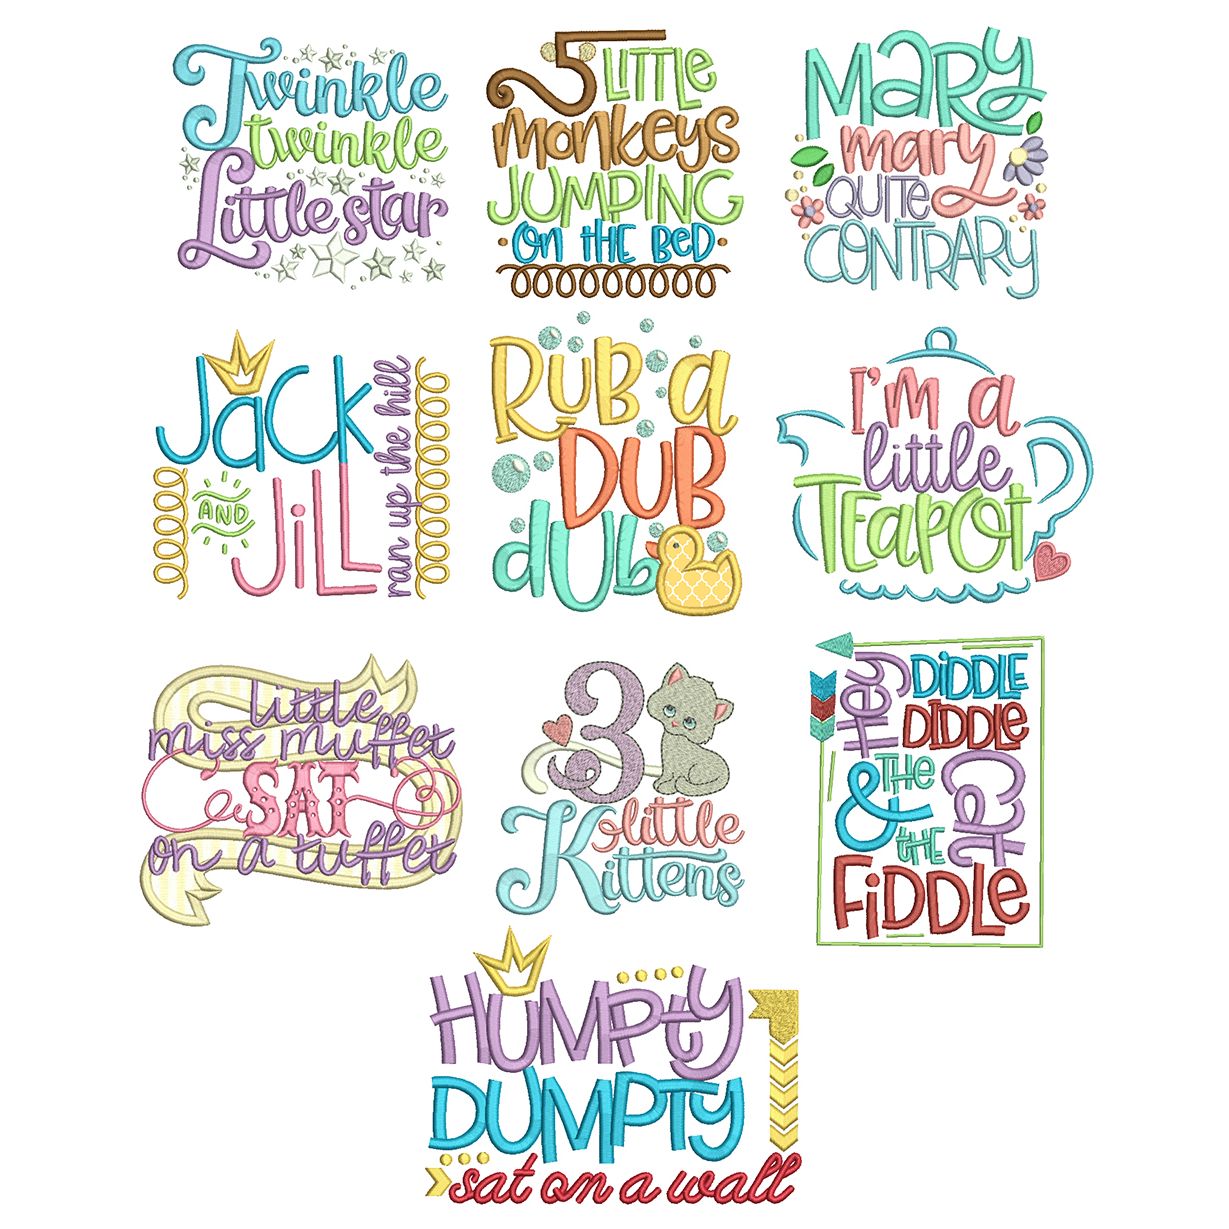 Twinkle
twinkle
Little star
5 LITTLE
monkeys
JUMPING
on tHE BED
MaRy
mary
QUITE
CONTRARY
Jack
AND
JiLL
ran up the hill
RUB a
DUB
dUb
I'm a
little
TEAPOt
little
miss muffet
SAT
on a tuffet
3
little
Kittens
Hey
DiDDLE
DiDDLE
THE
Cat
& tHE
FiDDLe
HUMPty
DUMPTy
sat on a wall